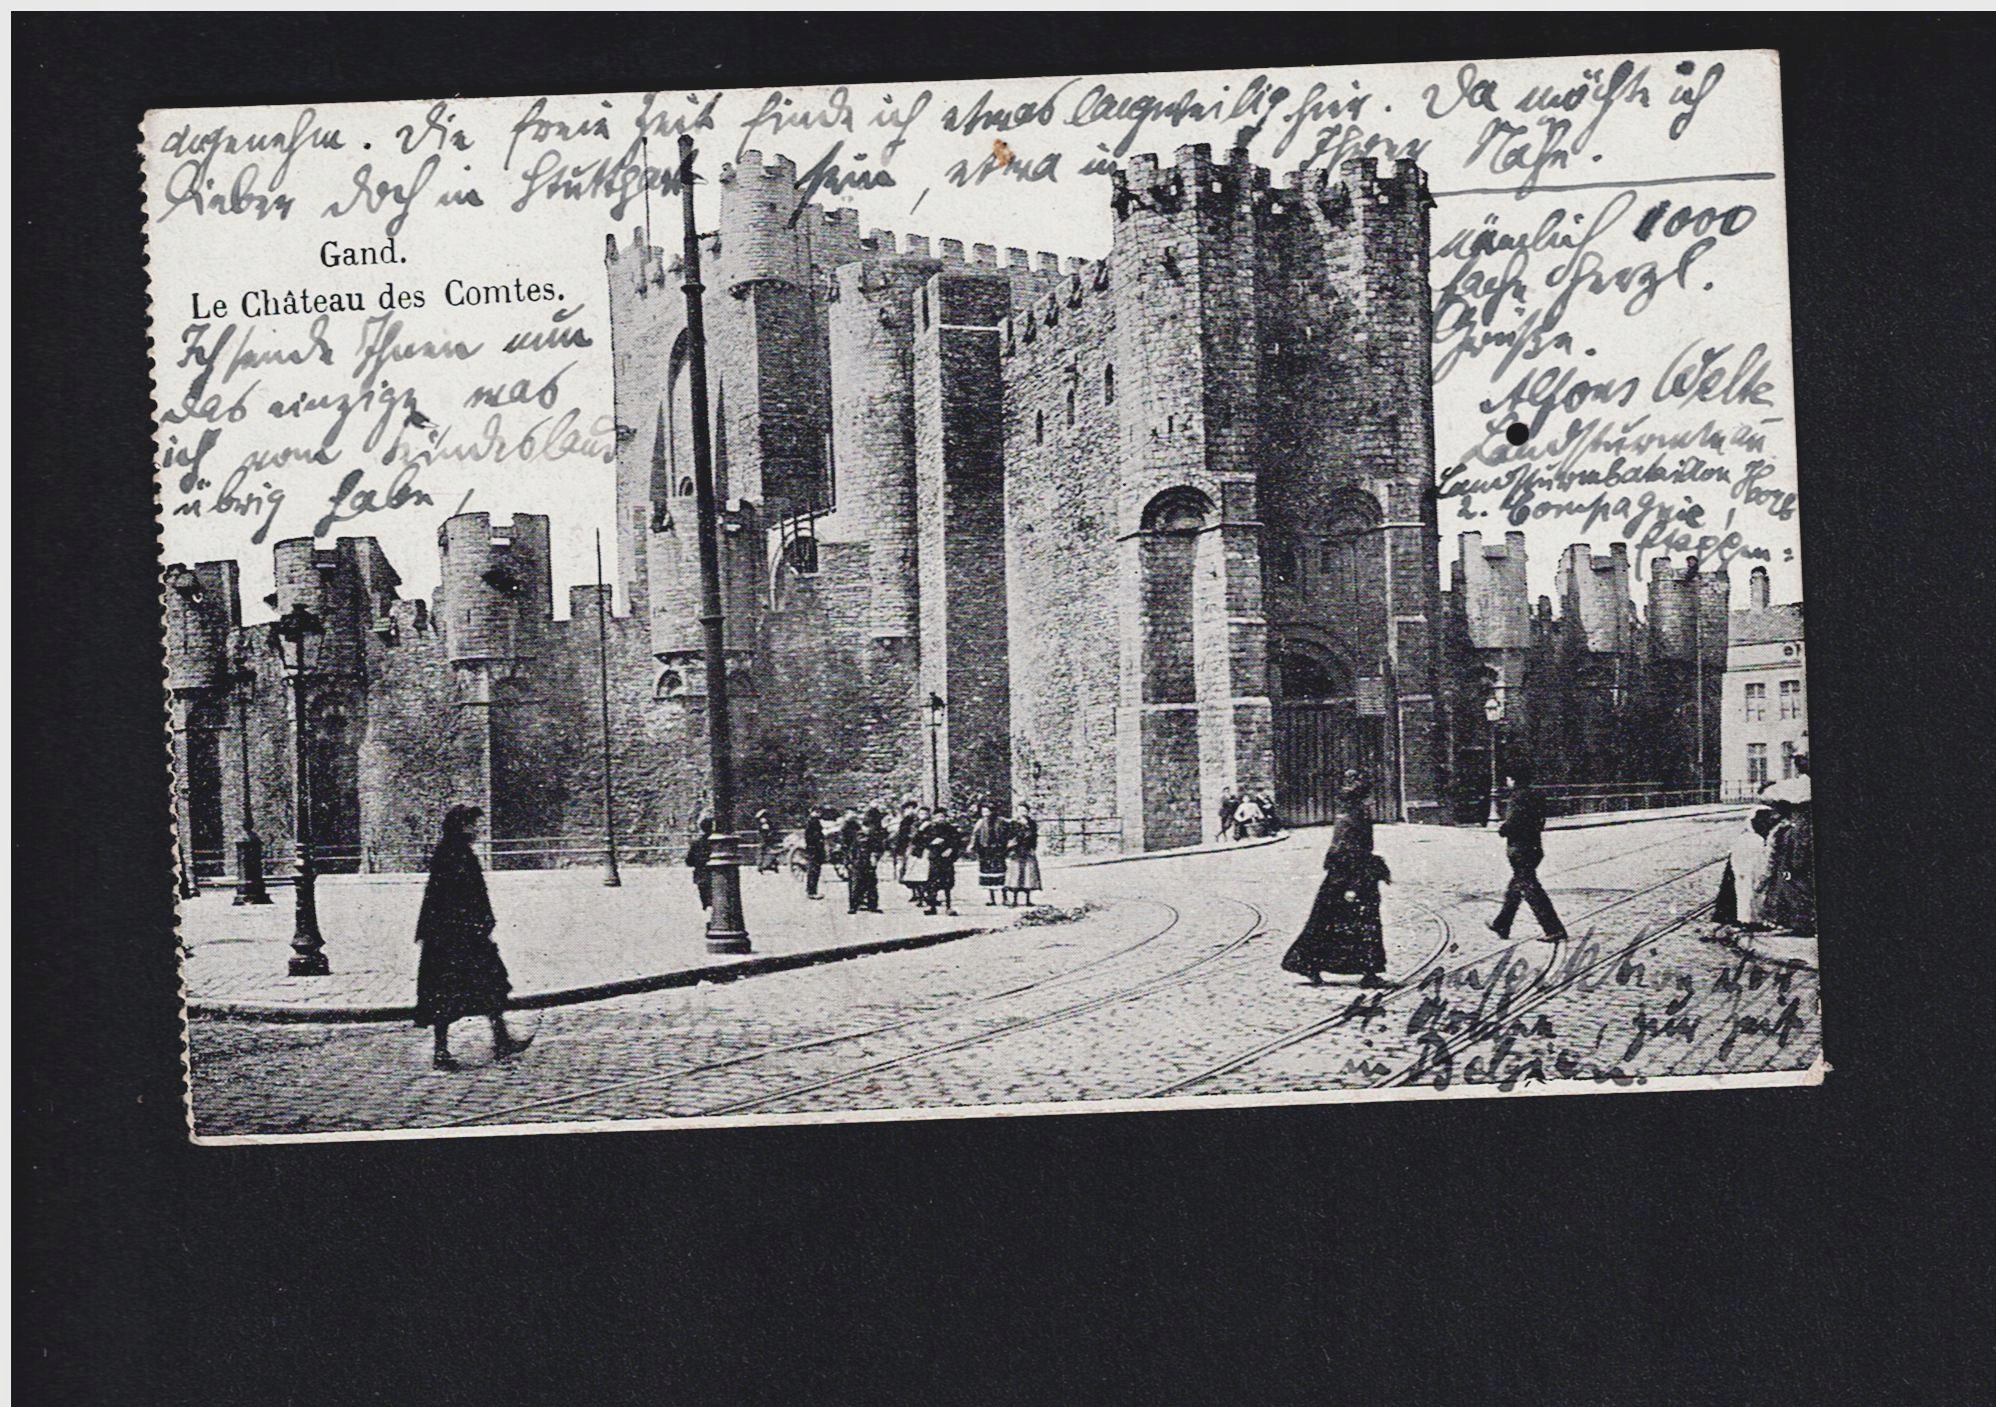 angenehm. Die freie Zeit finde ich etwas langweilig hier. Da möchte ich
lieber doch in Stuttgart sein, etwa in Ihrer Nähe.
Gand.
Le Château des Comtes.
Ich sende Ihnen nun
das einzige was
ich vom
übrig habe,
nämlich 1000
fache herzl.
Grüße.
Alfons Welte
Landsturmmann
Landsturmbataillon Horb
2. Compagnie,
Etappen-
inspektion der
4. Armee, zur Zeit
in Belgien.